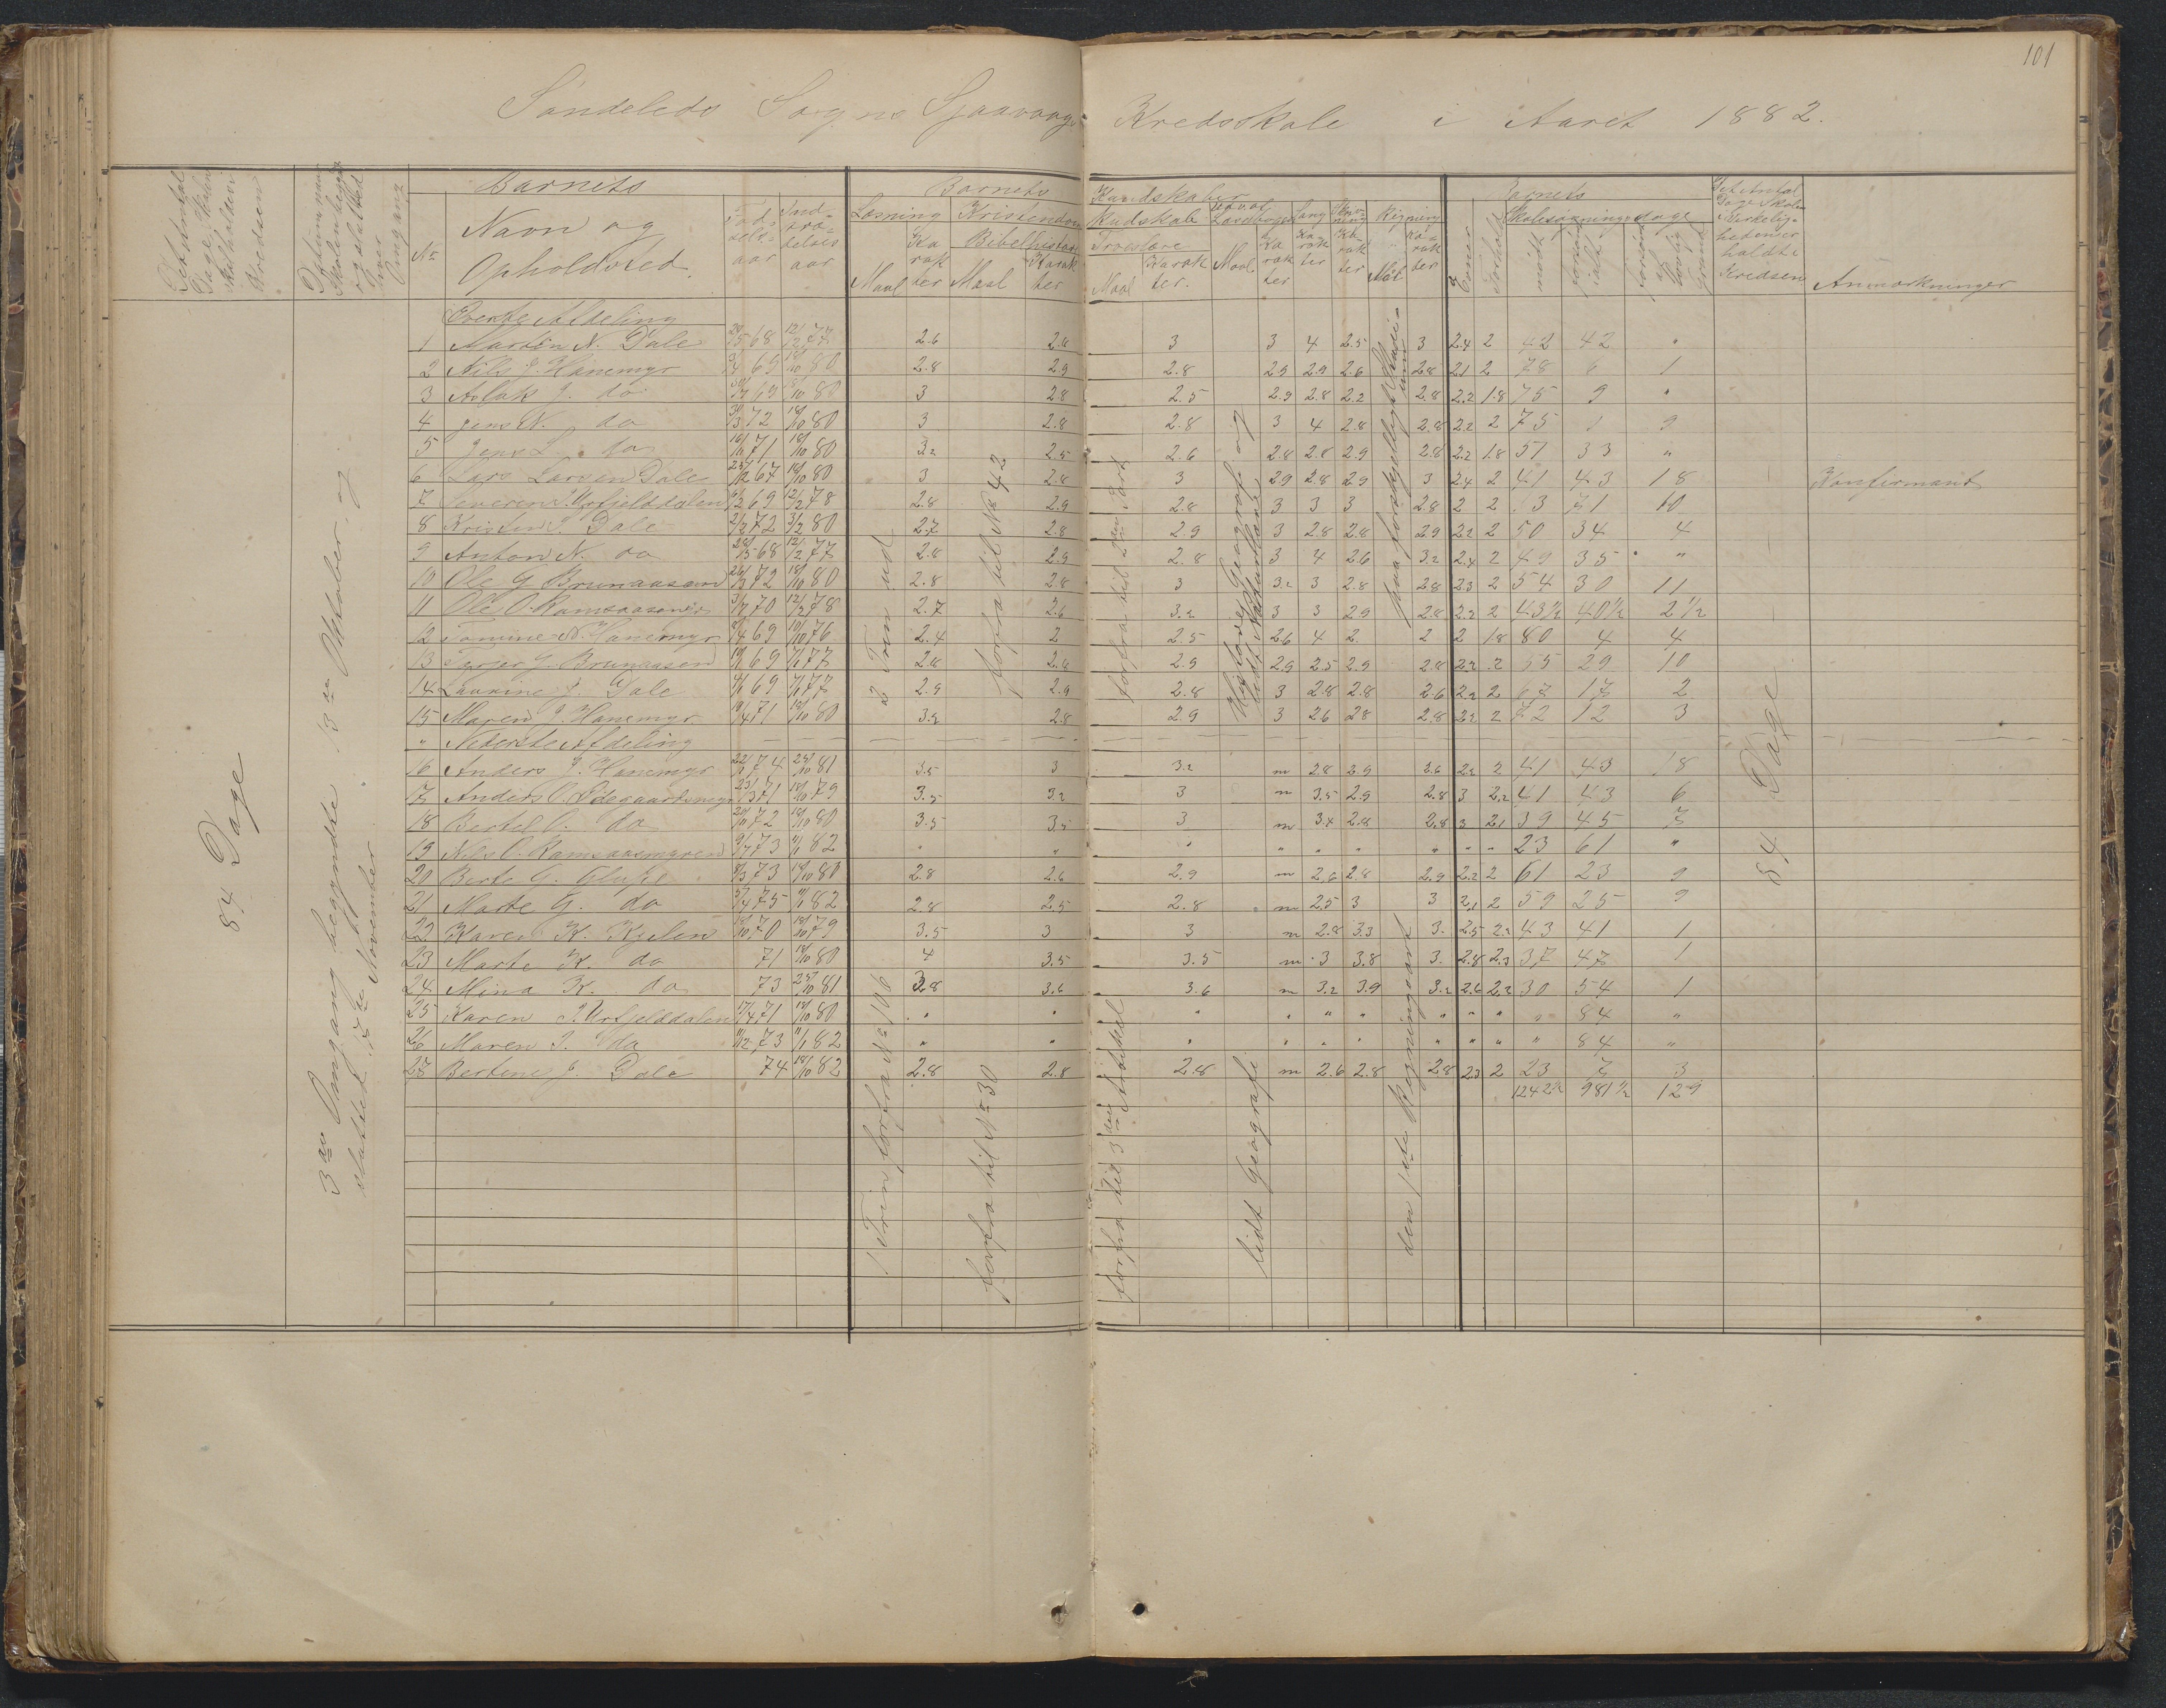 101
Søndeleds Sogns Sjaavaag Kredsskole i Aaret 1882.
Det Antal Dage Skolen skal holdes i Kredsen
Datum naar Skolen begyndte og sluttede hver Omgang
Barnets
No
Navn og Opholdsted.
Fødselsaar
Indtrædelsesaar
Barnets Kundskaber
Læsning
Maal
Karakter
Kristendomskundskab
Bibelhistorie
Maal
Karakter
Troeslære
Maal
Karakter.
Udvalg Læsebogen
Maal
Karakter
Sang
Karakter
Skrivning
Karakter
Regning
Maal
Karakter
Barnets
Evner
Forhold
Skolesøgningsdage
mødt
forsømt ialt
forsømt af lovlig Grund
Det Antal Dage Skolen i Virkeligheden er holdt i Kredsen
Anmærkninger
84 Dage
3die Omgang begyndte 13de Oktober og
sluttet 7de November
Øverste Afdeling
1 Martin N. Dale 68 12/2 77 2.6 2.6 3 3 4 2.5 3 2.4 2 42 42 "
2 Nils J. Hanemyr 69 18/10 80 2.8 2.9 2.8 2.9 2.9 2.6 2.8 2.1 2 78 6 1
3 Aslak J. do 69 18/10 80 3 2.8 2.5 2.9 2.8 2.2 2.8 2.2 1.8 75 9 "
4 Jens N. do 72 18/10 80 3 2.8 2.8 3 4 2.8 2.8 2.2 2 75 9
5 Jens L. do 71 18/10 80 3.2 2.5 2.6 2.8 2.8 2.9 2.8 2.2 1.8 51 33 "
6 Lars Larsen Dale 67 18/10 80 3 2.8 3 2.9 2.8 2.9 3 2.4 2 41 43 18 Konfirmant
7 Severin J. Urfjelddalen 69 12/2 78 2.8 2.9 2.8 3 3 3 2.8 2 2 71 10
8 Kristen J. Dale 72 3/2 80 2.7 2.8 2.9 3 2.8 2.8 2.9 2.2 2 50 34 4
9 Anton N. do 68 12/2 77 2.8 2.9 2.8 3 4 2.6 3.2 2.4 2 49 35 "
10 Ole G Brunaasen 72 18/10 80 2.8 2.8 3 3.2 3 2.8 2.8 2.3 2 54 30 11
11 Ole O. Ramsaasmyr 70 12/2 78 2.7 2.6 3.2 3 3 2.9 2.8 2.2 2 43½ 40½ 2½
12 Tomine N. Hanemyr 69 10/10 76 2.4 2 2.5 2.6 4 2 2 2 1.8 80 4 4
13 Terjer G. Brunaasen 69 77 2.6 2.6 2.9 2.9 2.5 2.9 2.8 2.2 2 55 29 10
14 Laurine J. Dale 69 77 2.9 2.9 2.8 3 2.8 2.8 2.6 2.2 2 67 17 2
15 Maren J. Hanemyr 71 18/10 80 3.2 2.8 2.9 3 2.6 2.8 2.8 2.2 2 72 12 3
" Nederste Afdeling
16 Anders J. Hanemyr 74 25/10 81 3.5 3 3.2 m 2.8 2.9 3.6 2.2 2 41 43 18
17 Anders O. Ødegaardsmyr 71 18/10 79 3.5 3.2 3 m 3.5 2.9 2.8 3 2.2 41 43 6
18 Bertel O. do 72 18/10 80 3.5 3.5 3 m 3.4 2.8 2.8 3 2.1 39 45 7
19 Nils O. Ramsaasmyren 73 82 " " " " " " " " " 23 61 "
20 Berte G. Glupe 73 18/10 80 2.8 2.6 2.9 m 2.6 2.8 2.9 2.2 2 61 23 9
21 Marte G. do 75 82 2.8 2.5 2.8 m 2.5 3 3 2.1 2 59 25 9
22 Karen K. Kielen 70 18/10 79 3.5 3 3 m 2.8 3.3 3. 2.5 2.2 43 41 1
23 Marte K. do 71 18/10 80 4 3.5 3.5 m 3 3.8 3. 2.8 2.3 37 47 1
24 Mina K. do 73 25/10 81 3.8 3.6 3.6 m 3.2 3.9 3.2 2.6 2.2 30 54 1
25 Karen J. Urfjelddalen 71 18/10 80 " " " " " " " " " " 84 "
26 Maren J. do 73 82 " " " " " " " " " " 84 "
27 Bertine J. Dale 74 18/10 82 2.8 2.8 2.8 m 2.6 2.8 2.8 2.3 2 23 7 3
1242½ 981½ 129
2 Trin ud
forfra til No 42
forfra til 2den Part
Historie, Geografi og
lidt Naturkundskab
paa forskjelligt Standpunkt
1 Trin forfra No 106
forfra til No 30
forfra til 3die Artikel
lidt Geografi
den 1ste Regningsart
84 Dage